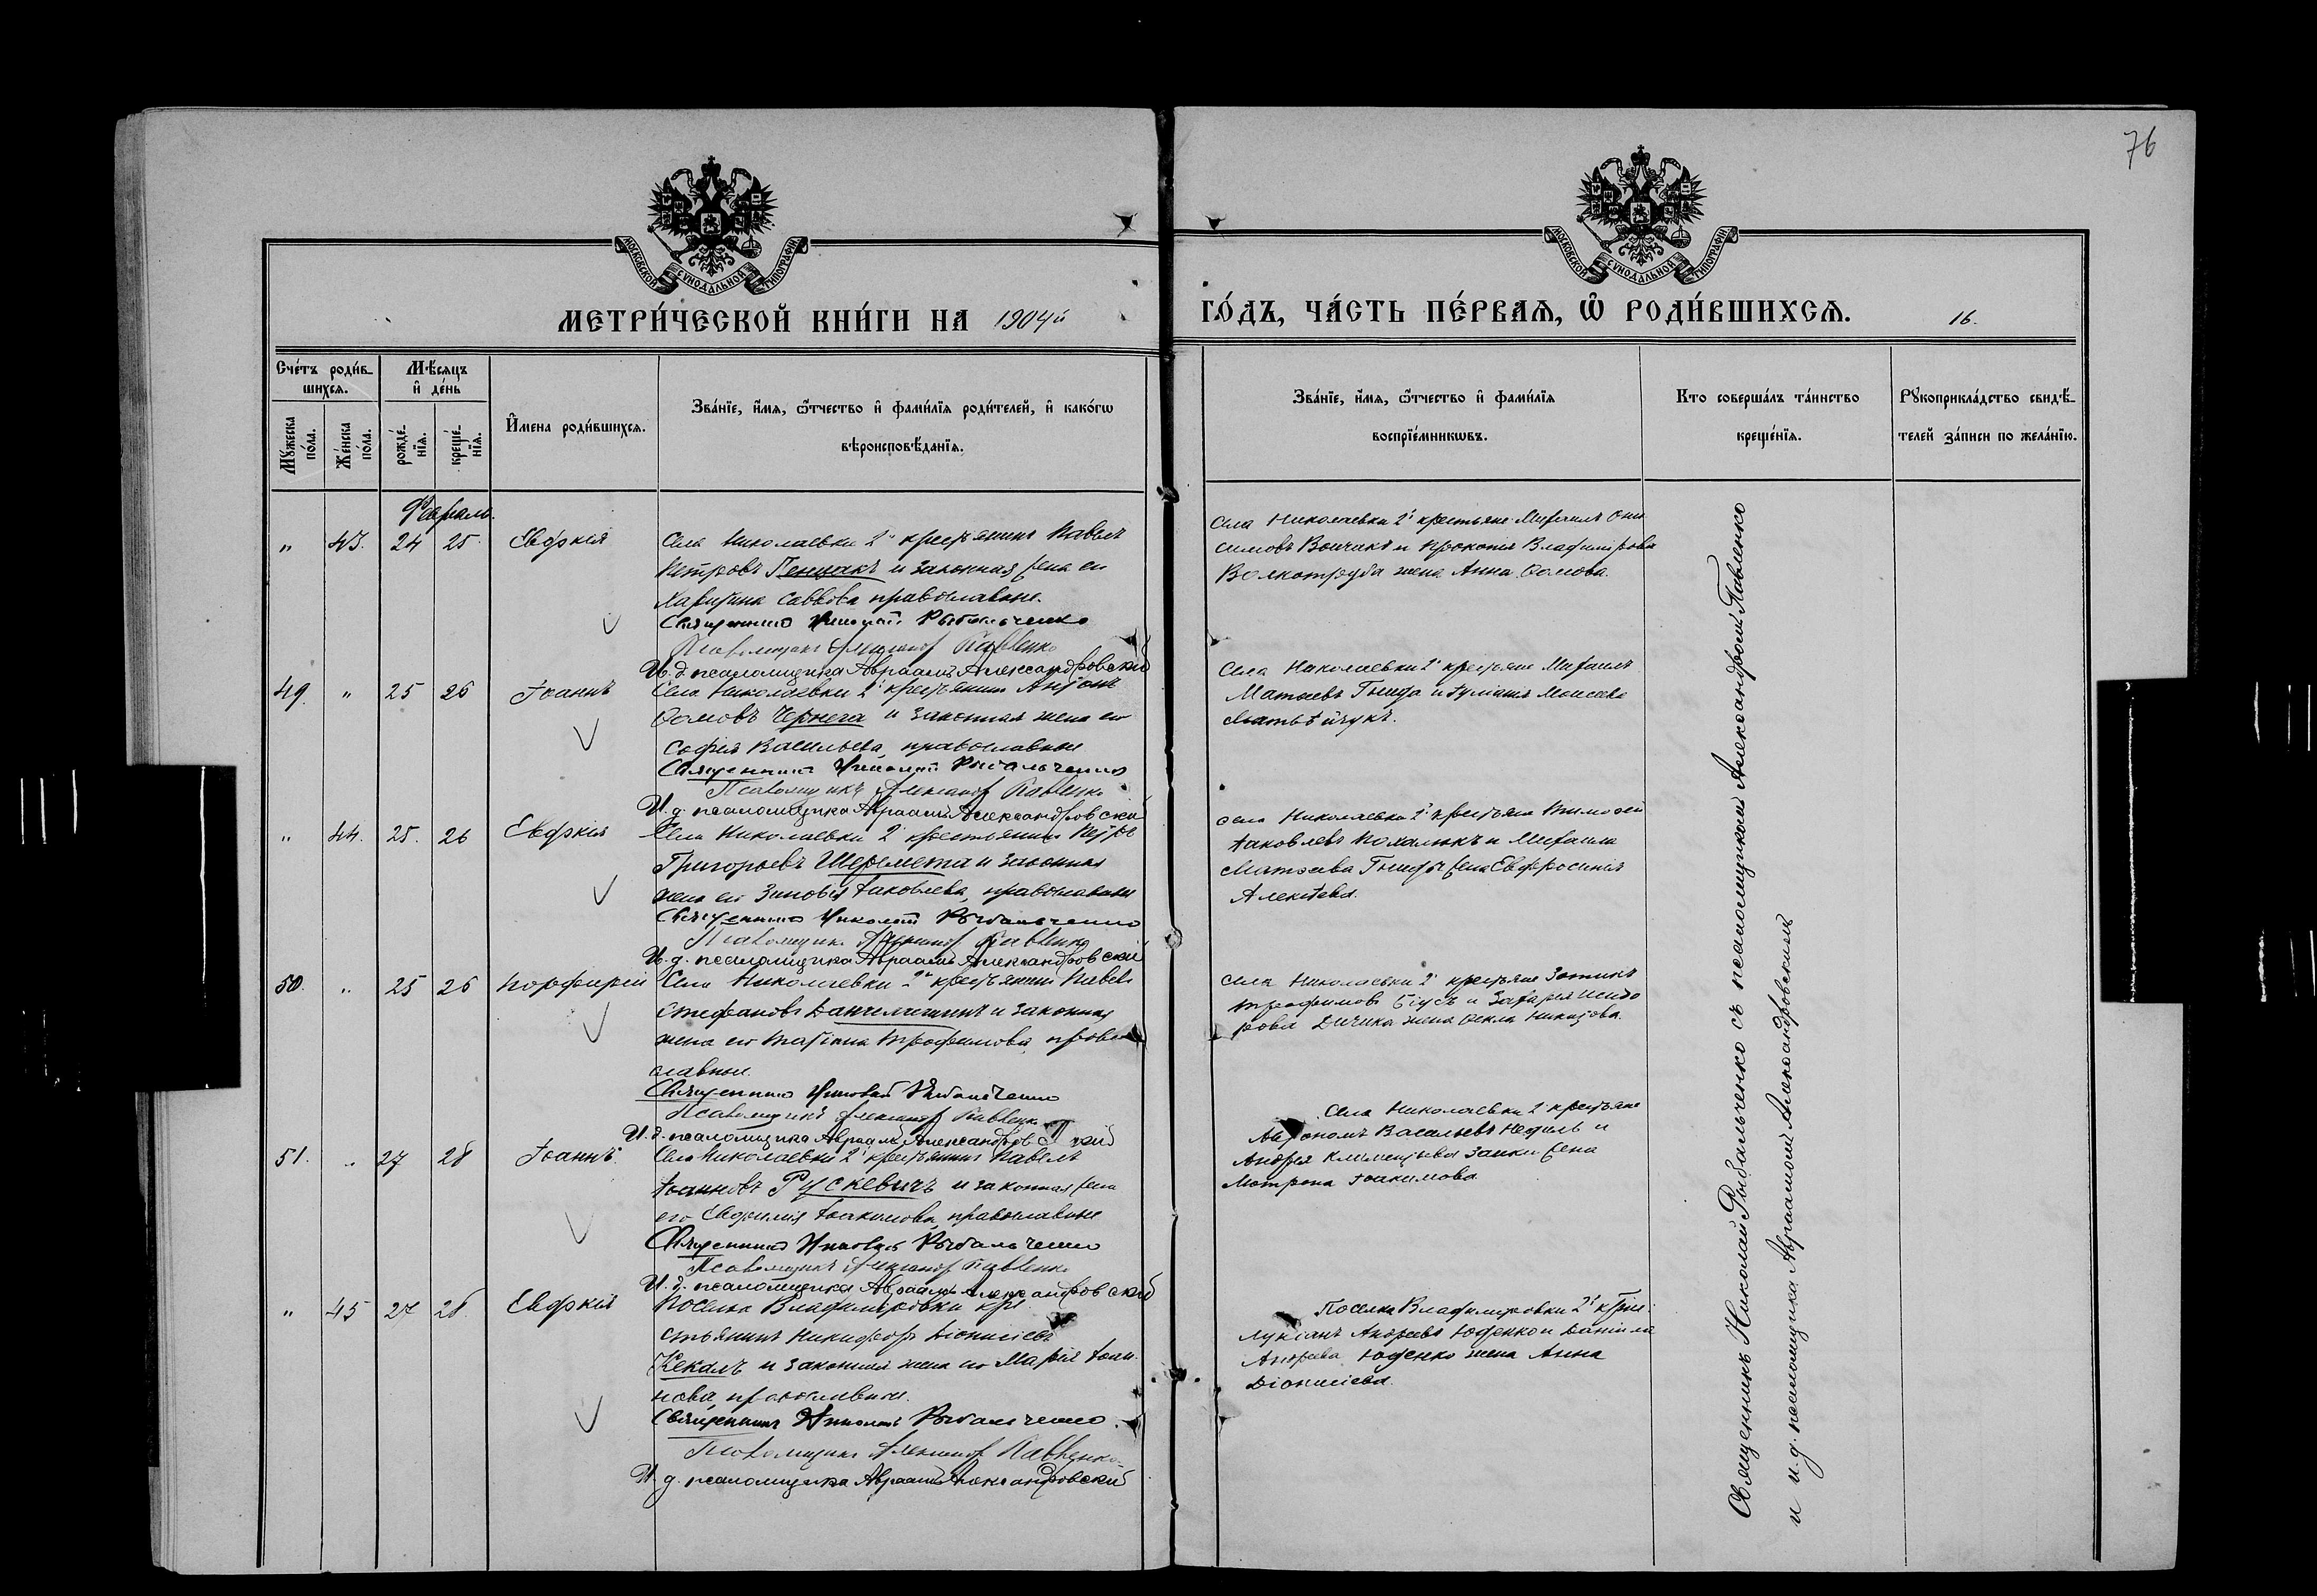 76
МОСКОВСКОЙ СУНОДАЛЬНОЙ ТИПОГРАФІИ
МОСКОВСКОЙ СУНОДАЛЬНОЙ ТИПОГРАФІИ
МЕТРИ́ЧЕСКОЙ КНИ́ГИ НА 1904й
ГО́ДЪ, ЧА́СТЬ ПЕ́РВАѦ, Ѽ РОДИ́ВШИХСѦ. 16.
Сче́тъ роди́в-
шихсѧ.
Мѣ́сѧцъ
и҆ де́нь
Мꙋ́жеска по́ла.
Же́нска по́ла.
рожде́-нїѧ.
креще́-нїѧ.
И҆мена роди́вшихсѧ.
Зва́нїе, и҆́мѧ, ѻ҆́тчество и҆ фами́лїѧ роди́телей, и҆ како́гѡ
вѣроисповѣ́данїѧ.
Зва́нїе, и҆́мѧ, ѻ҆́тчество и҆ фами́лїѧ
воспрїе́мникѡвъ.
Кто соверша́лъ та́инство
креще́нїѧ.
Рꙋкоприкла́дство свидѣ́-
телей за́писи по жела́нїю.
Февраль.
" 43. 24 25. Евдокія
Села Николаевки 2й крестьянинъ Павелъ
Петровъ и законная жена его
Харитина Саввова православные.
Священникъ Николай Рыбальченко
Псаломщикъ Александръ Павленко
И. д. псаломщика Авраамъ Александровскій
Села Николаевки 2й крестьяне Михаилъ Они-
симовъ Войчакъ и Прокопія Владимірова
Волкотруба жена Анна Ѳомова.
49. " 25 26 Іоаннъ
Села Николаевки 2й крестьянинъ Антонъ
Ѳомовъ Чернега и законная жена его
Софія Васильева, православные
Священникъ Николай Рыбальченко
Псаломщикъ Александръ Павленко
И. д. псаломщика Авраамъ Александровскій
Села Николаевки 2й крестьяне Михаилъ
Матѳеевъ Гнида и Іуліанія Моисеева
Матвѣйчукъ.
" 44. 25. 26 Евдокія
Села Николаевки 2й крестьянинъ Петръ
Григорьевъ Шеремета и законная
жена его Зиновія Іаковлева, православные
Священникъ Николай Рыбальченко
Псаломщикъ Александръ Павленко
И. д. псаломщика Авраамъ Александровскій
Села Николаевки 2й крестьяне Тимоѳей
Іаковлевъ и Михаила
Матѳеева Гниды жена Евфросинія
Алексѣева.
50. " 25 26 Порфирій
Села Николаевки 2й крестьянинъ Павелъ
Стефановъ и законная
жена его Татіана Трофимова, право-
славные.
Священникъ Николай Рыбальченко
Псаломщикъ Александръ Павленко
И. д. псаломщика Авраамъ Александровскій
Села Николаевки 2й крестьяне Зотикъ
Трофимовъ Бѣусъ и Захарія Исидо-
рова Дичика жена Ѳекла Никитова.
51. " 27 28 Іоаннъ.
Села Николаевки 2й крестьянинъ Павелъ
Іоанновъ Рускевичъ и законная жена
его Евфимія Іоакимова, православные
Священникъ Николай Рыбальченко
Псаломщикъ Александръ Павленко
И. д. псаломщика Авраамъ Александровскій
Села Николаевки 2й крестьяне
Автономъ Васильевъ и
Андрея Климентьева Заики жена
Мотрона Іоакимова
" 45 27 28. Евдокія
Поселка Владимировки кре-
стьянинъ Никифоръ Діонисіевъ
Кекалъ и законная жена его Марія Іоан-
нова, православные.
Священникъ Николай Рыбальченко.
Псаломщикъ Александръ Павленко.
И. д. псаломщика Авраамъ Александровскій
Поселка Владимировки 2й крес.
Лукіанъ Андреевъ Юденко и Даніила
Андреева Юденко жена Анна
Діонисіева.
Священникъ Николай Рыбальченко съ псаломщикомъ Александромъ Павленко
и и. д. псаломщика Авраамомъ Александровскимъ